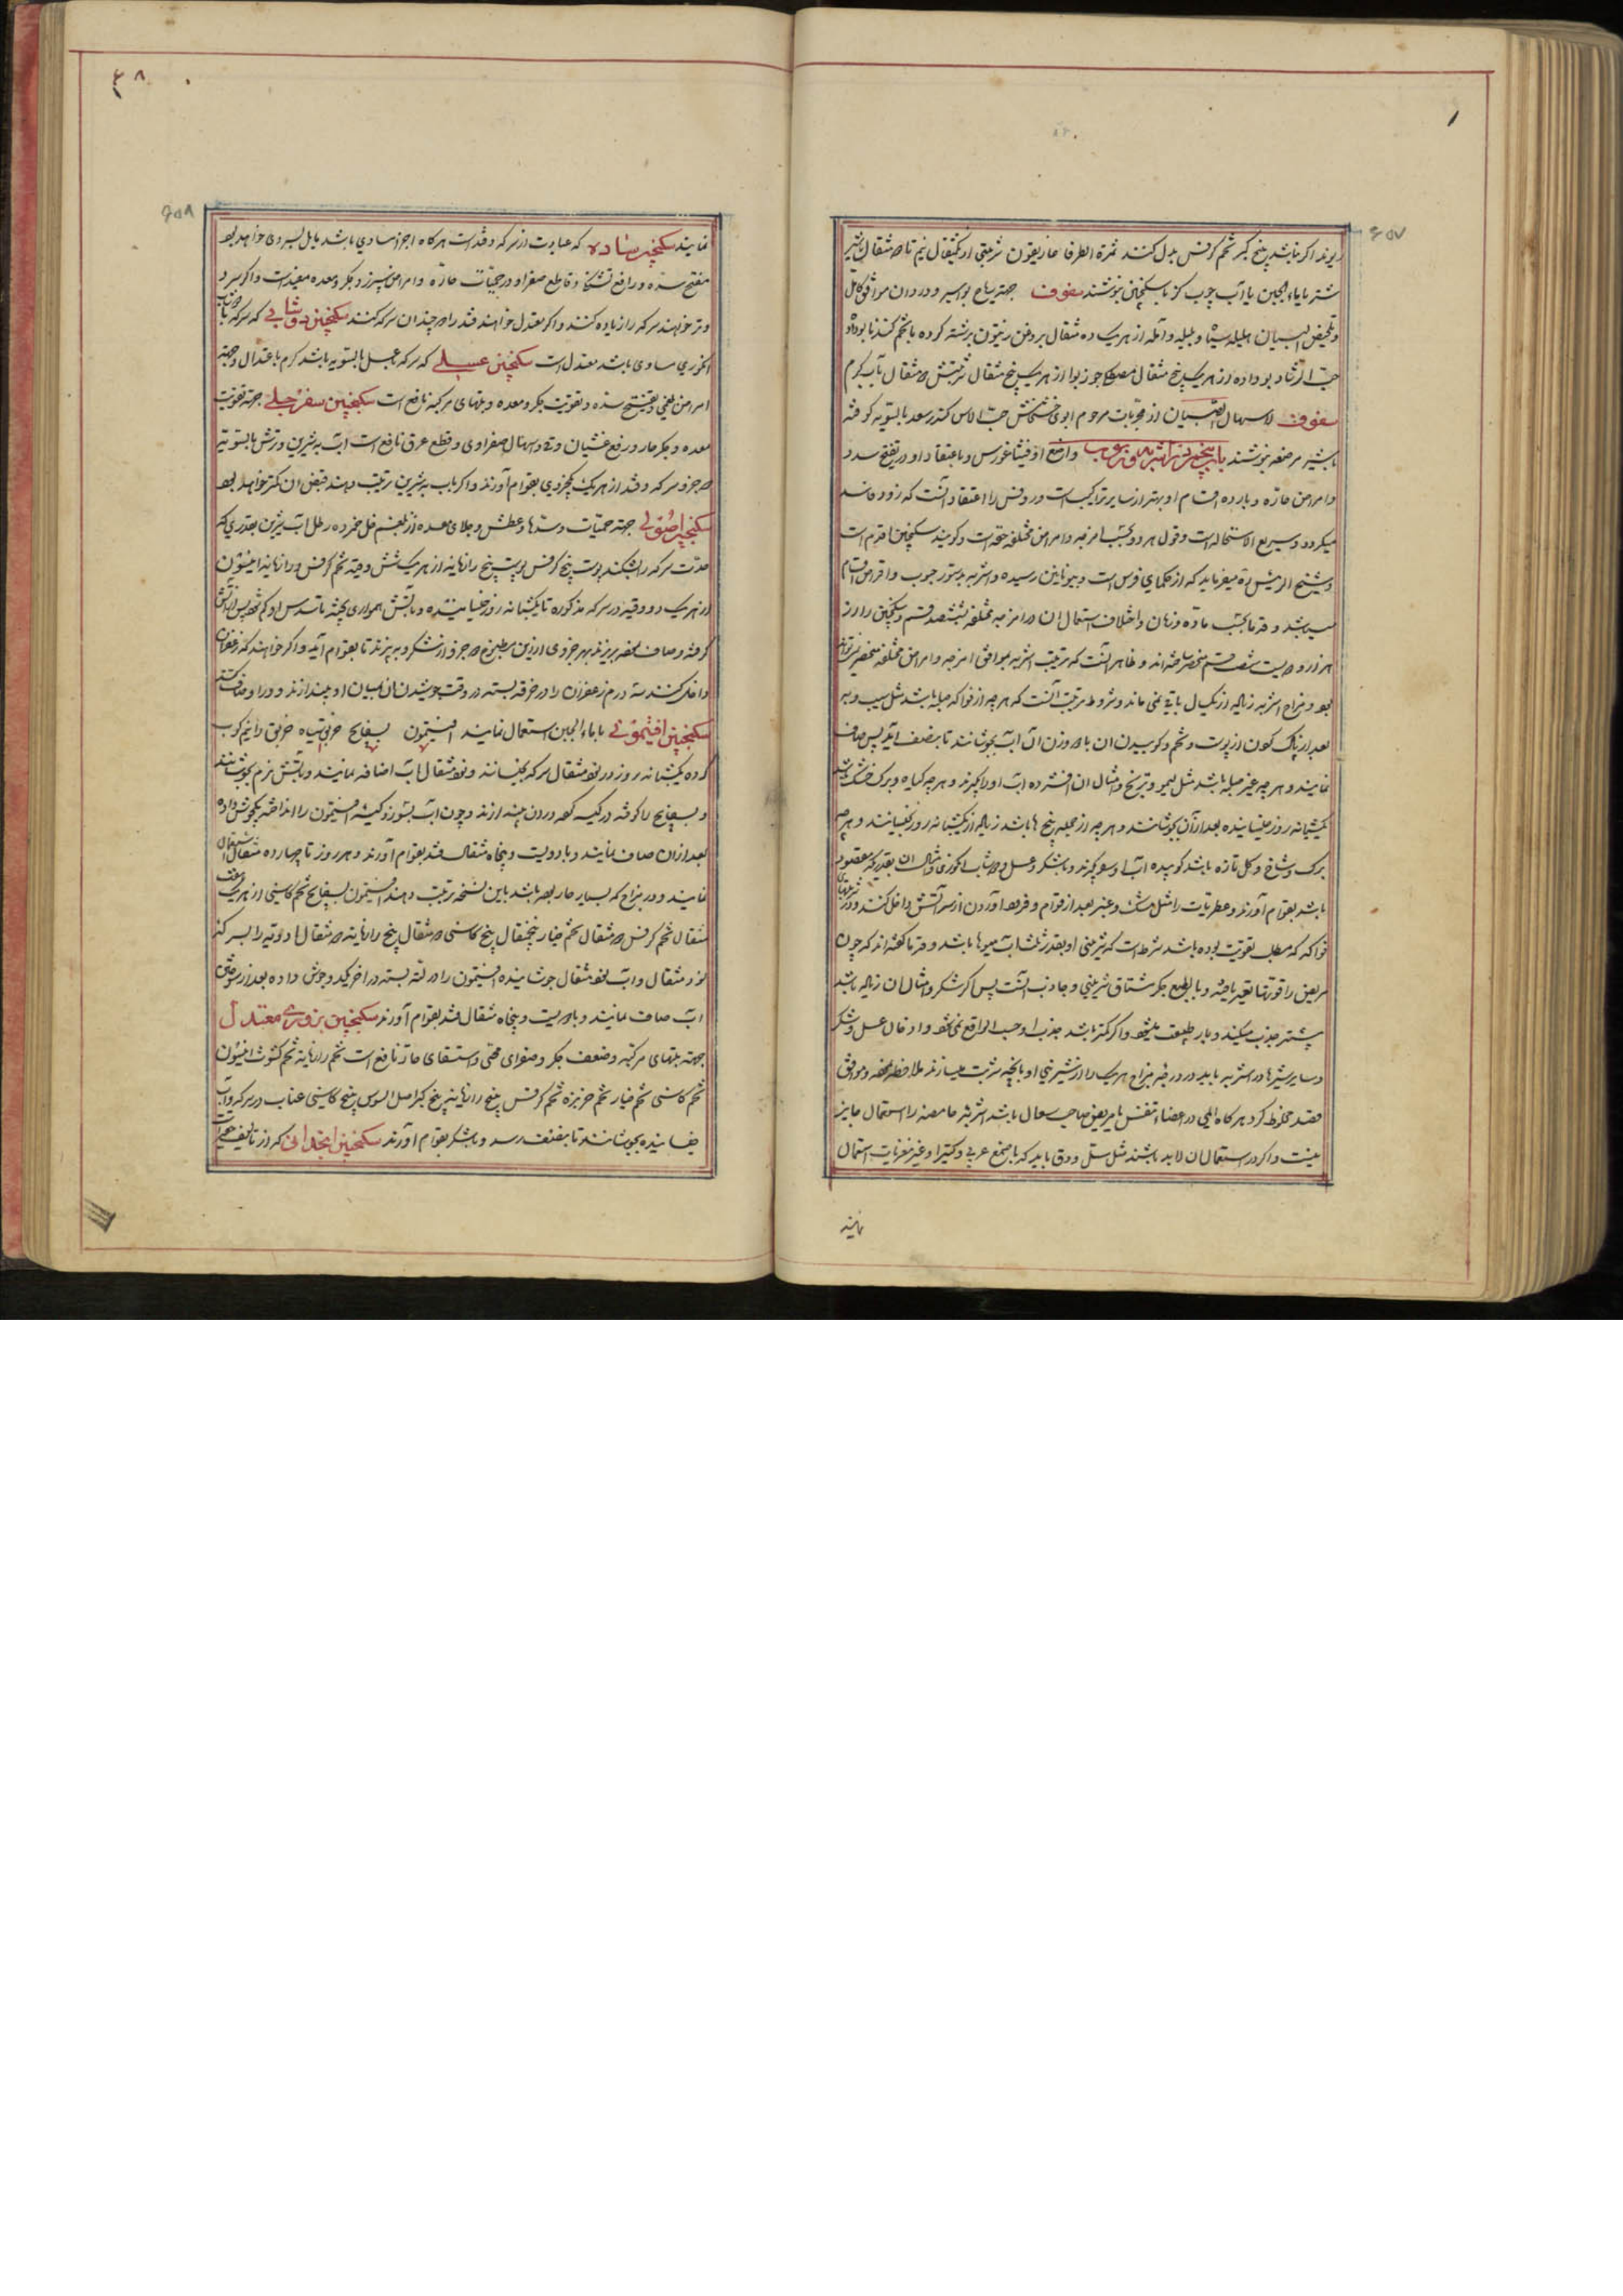 ۱
۶۵۷
ریزند اگر نباشد بیخ کبر تخم کرفس بدل کنند ثمرة الطرفا غاریقون شربتی از یکمثقال و نیم تا مثقال با شیر
شتر یا ماء الجبن یا آب چوب گز با سکنجبین بنوشند سفوف جهة ریاح بواسیر و در دران موافق کامل
و تلخیص البیان هلیله سیاه و بلیله و آمله از هر یک ده مثقال بروغن زیتون برشته کرده با تخم گندنا بو داده
حب الرشاد بو داده از هر یک پنج مثقال مصطکی جوز بوا از هر یک پنج مثقال شربتش مثقال بآب گرم
سفوف لاسهال الصبیان از مجربات مرحوم ابوی خشخاش حب الاس کندر سعد بالسویه کوفته
با شیر مرضعه بنوشند باب پنجم در اشربه و ربوب واضع او فیثاغورس و باعتقاد او در تفتیح سدد
و امراض حاره و بارده اقسام او بهتر از سایر تراکیب است و روفس را اعتقاد آنست که زود فاسد
میگردد و سریع الاستحاله است و قول هر دو بحسب امزجه و امراض مختلفه حقست و گویند سکنجبین اقدم است
و شیخ الرئیس میفرماید که از حکمای فرس است و بیونانین رسیده و اشربه بدستور حبوب و اقراص اقسام
میباشد و قدما بحسب ماده و زمان و اختلاف استعمال آن در امزجه مختلفه ششصد قسم و سکنجبین را از
هزار و دویست شصت قسم منحصر ساخته‌اند و ظاهر آنست که ترتیب اشربه موافق امزجه و امراض مختلفه منحصر نتواند
بود و مزاج اشربه زیاده از یکسال باقی نمی ماند و شروط ترتیب آنست که هر چه از فواکه صلبه باشد مثل سیب و به
بعد از پاک کردن از پوست و تخم و کوبیدن آن با دو وزن آن آب بجوشانند تا بنصف آید پس صاف
نمایند و هر چه غیر صلبه باشد مثل لیمو و ترنج و امثال آن افشرده آب او را بگیرند و هر چه گیاه و برگ خشک باشد
یکشبانه روز خیسانیده بعد از آن بجوشانند و هر چه از جمله بیخ ها باشد زیاده از یکشبانه روز بخیسانند و هر چه
برگ و شاخ و گل تازه باشد کوبیده آب او بگیرند و با شکر و عسل و دوشاب انگوری و امثال آن بقدری که مقصود
باشد بقوام آورند و عطریات را مثل مشک و عنبر بعد از قوام و فرود آوردن از سر آتش داخل کنند و در شربتهای
فواکه که مطلب تقویت بوده باشد شرط است که شیرینی او بقدر ثلث آب میوها باشد و قدما گفته‌اند که چون
مریض را قوتها تغییر یافته و بالطبع جگر مشتاق شیرینی و جاذب آنست پس اگر شکر و امثال آن زیاده باشد
بیشتر جذب میکند و بار طبیعت میشود و اگر کمتر باشد جذب او حسب الواقع نمی شود و ادخال عسل و شکر
و سایر شیرینها در اشربه باید در درجه مزاج هر یک را از شیرینی او بآنچه شربت میسازند ملاحظه نموده و موافق
قصد مخلوط کرد هر گاه المی در اعضاء تنفس یا مریض صاحب سعال باشد اشربه حامضه را استعمال جایز
نیست و اگر در استعمال آن لابد باشند مثل سل و دق باید که با صمغ عربی و کتیرا و غیر مغریات استعمال
نمایند
۶۵۸
نمایند سکنجبین ساده که عبارت از سرکه و قند است هر گاه اجزا مساوی باشد مایل بسردی خواهد بود
مفتح سده و رافع تشنگی و قاطع صفرا و در حمیات حاره و امراض سپرز و جگر و معده مفید است و اگر سرد
و تر خواهند سرکه را زیاده کنند و اگر معتدل خواهند قند را دو چندان سرکه کنند سکنجبین دوشابی که سرکه با دوشاب
انگوری مساوی باشد معتدل است سکنجبین عسلی که سرکه با عسل بالسویه باشد گرم باعتدال و جهة
امراض بلغمی و تفتیح سده و تقویت جگر و معده و تبهای مرکبه نافع است سکنجبین سفرجلی جهة تقویت
معده و جگر حار و رفع غثیان و قی و اسهال صفراوی و قطع عرق نافع است آب به شیرین و ترش بالسویه
دو جزو سرکه و قند از هر یک یکجزو بقوام آورند و اگر با به شیرین ترتیب دهند قبض آن کمتر خواهد بود
سکنجبین اصولی جهة حمیات و سدها و عطش و جلای معده از بلغم خل خمر ده رطل آب شیرین بقدری که
حدت سرکه را بشکند پوست بیخ کرفس پوست بیخ رازیانه از هر یک شش وقیه تخم کرفس و رازیانه انیسون
از هر یک دو وقیه در سرکه مذکوره تا یکشبانه روز خیسانیده و بآتش همواری پخته تا سدس او کم شود پس از آتش
گرفته و صاف نموده بریزند بهر جزوی از این مطبوخ دو جزو از شکر و بپزند تا بقوام آید و اگر خواهند که زعفران
داخل کنند سه درم زعفران را در خرقه بسته در وقت جوشیدن آن بمیان او بیندازند
سکنجبین افتیمونی با ماء الجبن استعمال نمایند افتیمون بسفایج خربق سیاه خربق را نیم کوب
کرده یکشبانه روز در نود مثقال سرکه بخیسانند و نود مثقال آب اضافه نمایند و بآتش نرم بجوشانند
و بسفایج را کوفته در کیسه کرده در آن بیندازند و چون آب بسوزد کیسه افتیمون را انداخته یکجوش داده
بعد از آن صاف نمایند و با دویست و پنجاه مثقال قند بقوام آورند و هر روز تا چهارده مثقال استعمال
نمایند و در مزاج که بسیار حار بوده باشد باین نسخه ترتیب دهند افتیمون بسفایج تخم کاسنی از هر یک هفت
مثقال تخم کرفس دو مثقال تخم خیار پنجمثقال بیخ کاسنی ده مثقال بیخ رازیانه مثقال ادویه را بسرکه
نود مثقال و آب نود مثقال جوشانیده افتیمون را در لته بسته در آخر یکدو جوش داده بعد از سوختن
آب صاف نمایند و با دویست و پنجاه مثقال قند بقوام آورند سکنجبین بزوری معتدل
جهة تبهای مرکبه و ضعف جگر و صفرای محی و استسقای حار نافع است تخم رازیانه تخم کشوث انیسون
تخم کاسنی تخم خیار تخم خربزه تخم کرفس بیخ رازیانه بیخ کبر اصل السوس بیخ کاسنی عناب در سرکه و آب
خیسانیده بجوشانند تا بنصف رسد و با شکر بقوام آورند سکنجبین انجدانی که از تألیف